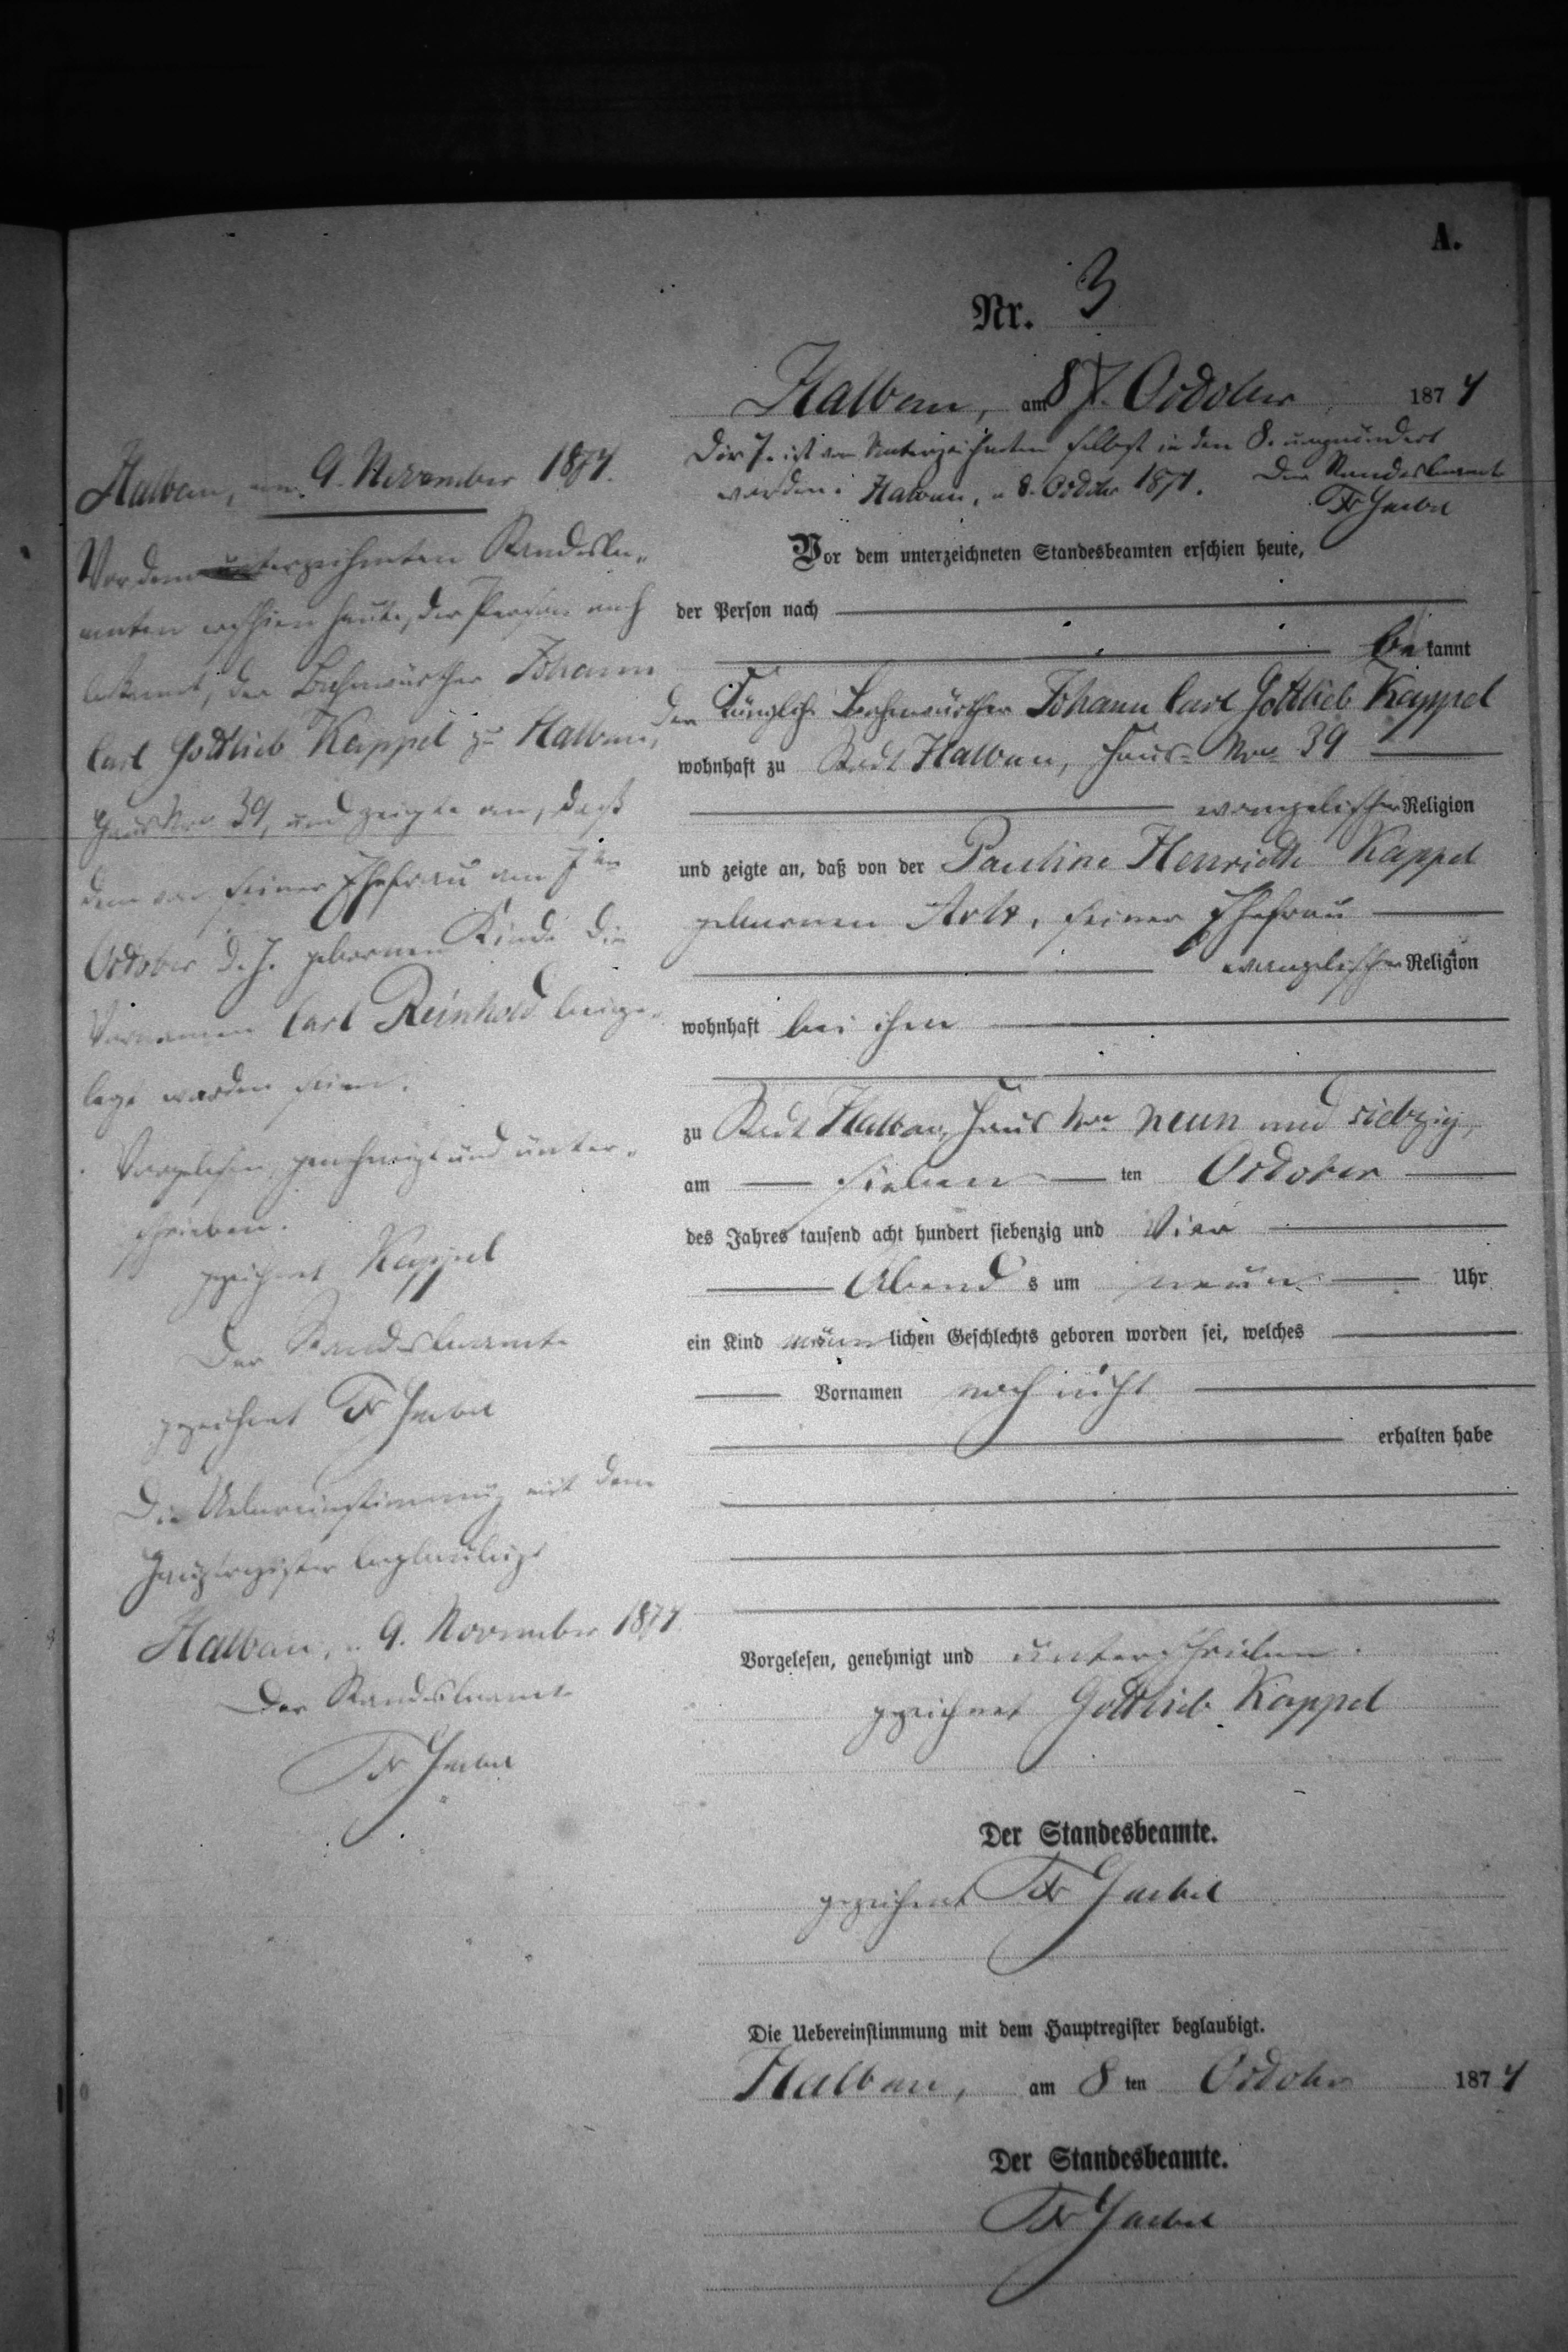 A.
Nr. 3
Halbau, am 8 7. October 1874
Die 7. ist vom Unterzeichneten selbst in den 8. umgeändert
worden. Halbau, d. 8. October 1874. Der Standesbeamte
Fr
Vor dem unterzeichneten Standesbeamten erschien heute,
der Person nach
bekannt
der Bahnwärther Johann Carl Gottlieb Kappel
wohnhaft zu Stadt Halbau, Haus-Nro 39
evangelischer Religion
und zeigte an, daß von der Pauline Henriette Kappel
gebornen seiner Ehefrau
evangelischer Religion
wohnhaft bei ihm
zu Stadt Halbau, Haus Nro neun und siebzig,
am sieben ten October
des Jahres tausend acht hundert siebenzig und vier
Abend s um neun Uhr
ein Kind männlichen Geschlechts geboren worden sei, welches
Vornamen noch nicht
erhalten habe
Vorgelesen, genehmigt und unterschrieben.
gezeichnet Gottlieb Kappel
Der Standesbeamte.
gezeichnet Fr
Die Uebereinstimmung mit dem Hauptregister beglaubigt.
Halbau, am 8 ten October 1874
Der Standesbeamte.
Fr
Halbau, am 9. November 1874.
Vor dem unterzeichneten Standesbe-
amten erschien heute, der Person nach
bekannt, der Bahnwärther Johann
Carl Gottlieb Kappel zu Halbau,
Haus Nro 39, und zeigte an, daß
dem von seiner Ehefrau am 7ten
October d. J. gebornen Kinde die
Vornamen Carl Reinhold beige-
legt worden seien.
Vorgelesen, genehmigt und unter-
schrieben.
gezeichnet Kappel
Der Standesbeamte
gezeichnet Fr
Die Uebereinstimmung mit dem
Hauptregister beglaubigt
Halbau, d. 9. November 1874.
Der Standesbeamte
Fr